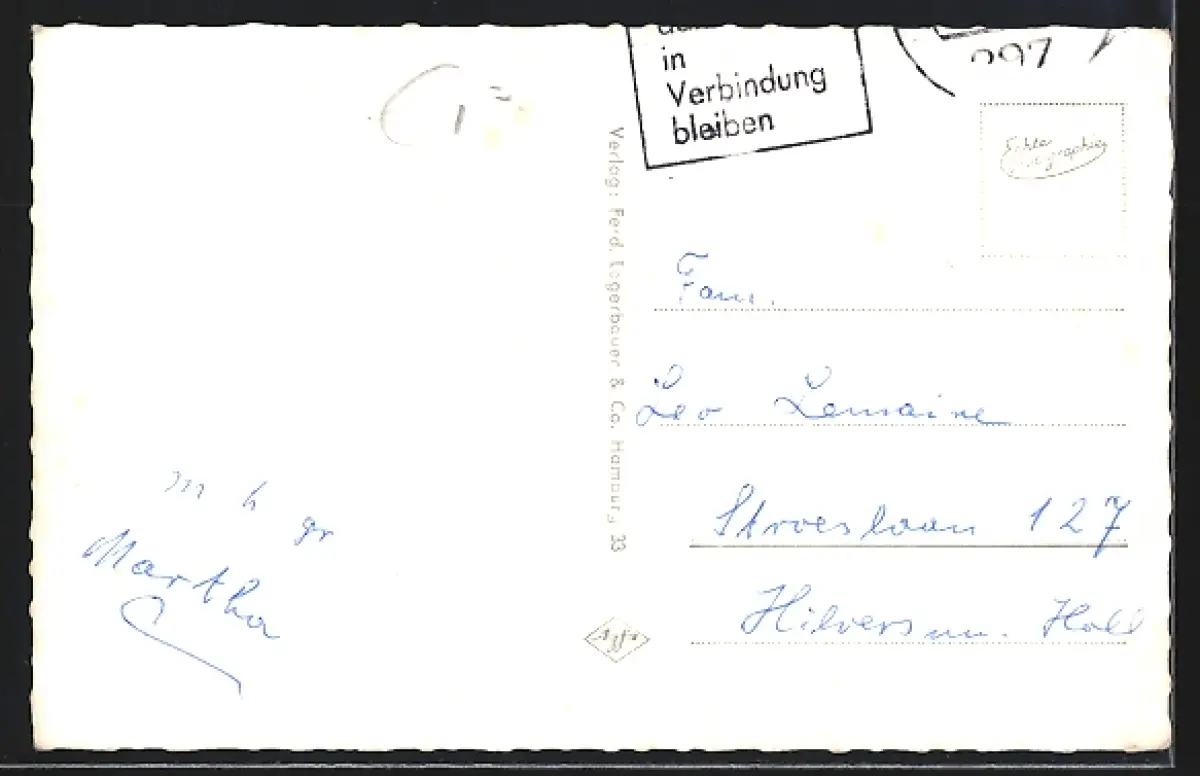 in
Verbindung
bleiben
097
Echte
Photographie
Verlag: Ferd. Lagerbauer & Co. Hamburg 33
Fam.
Leo Lemaine
Stroeslaan 127
Hilversum. Holl
m h gr
Martha
Agfa